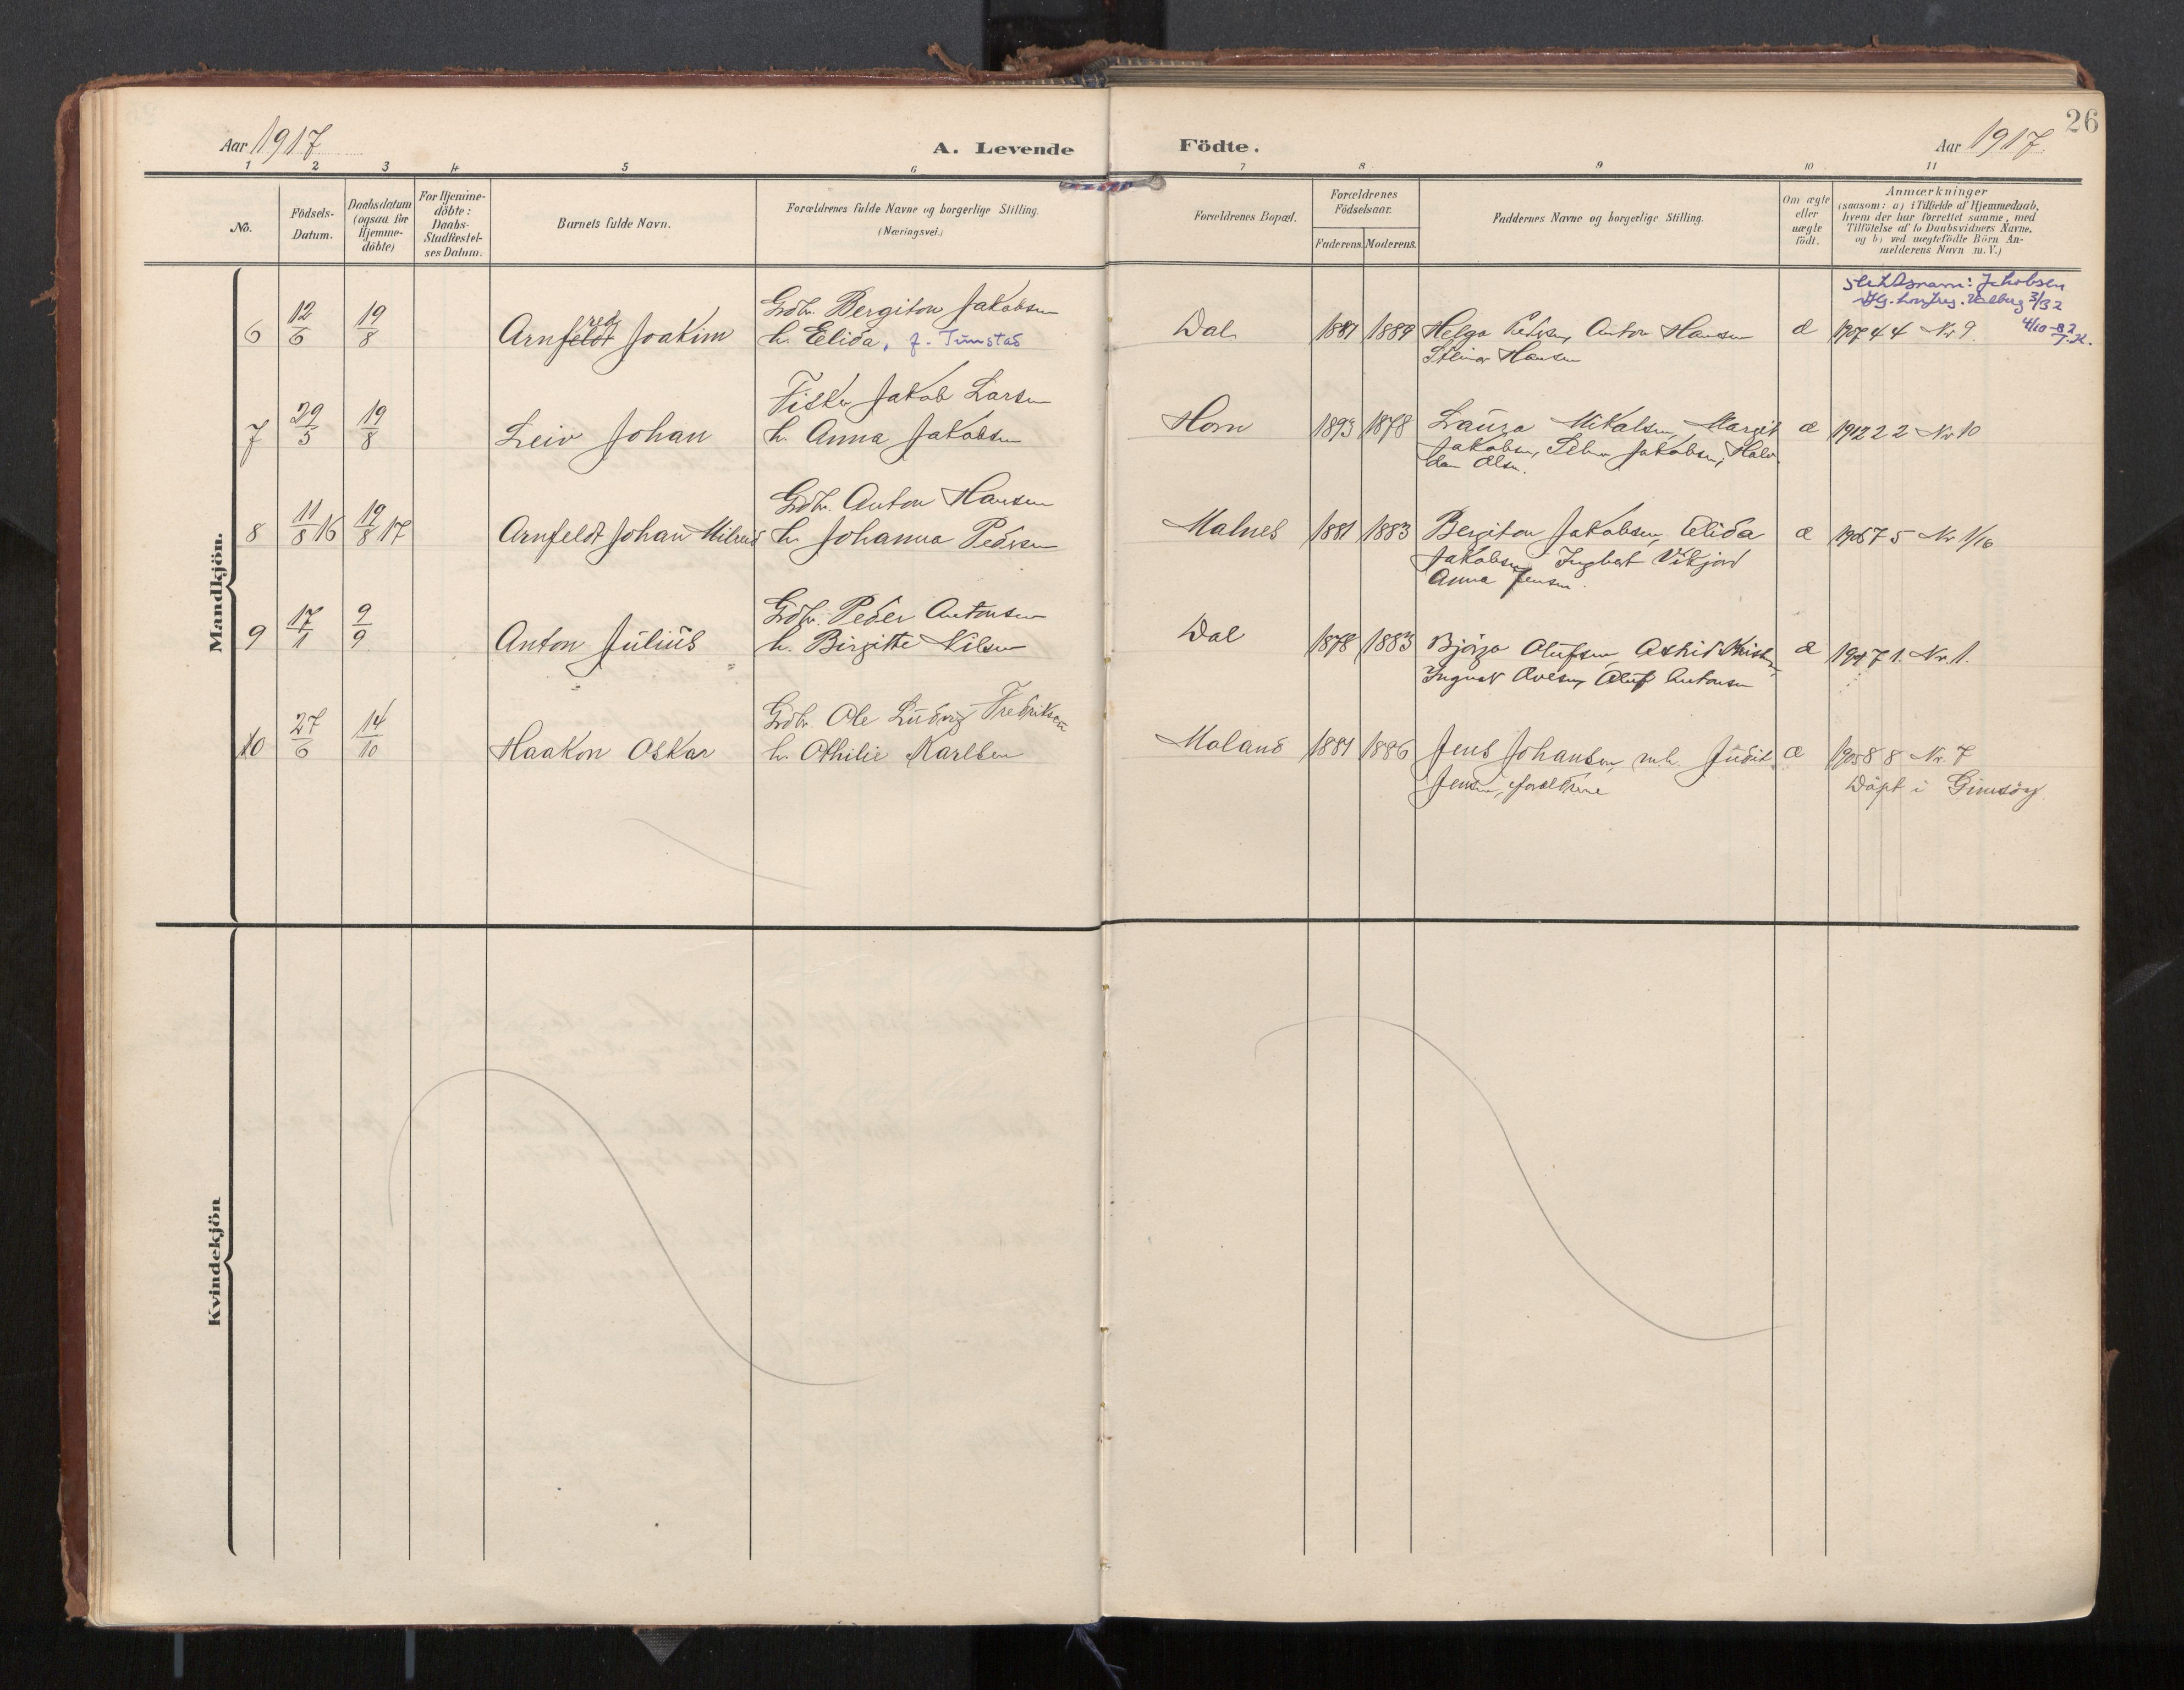 26
Aar 1917
A. Levende Födte.
Aar 1917.
1 2 3 4 5 6 7 8 9 10 11
No.
Födsels-
Datum.
Daabsdatum
(ogsaa for
Hjemme-
döbte)
For Hjemme-
döbte:
Daabs-
Stadfæstel-
ses Datum.
Barnets fulde Navn.
Forældrenes fulde Navne og borgerlige Stilling.
(Næringsvei.)
Forældrenes Bopæl.
Forældrenes
Födselsaar.
Faderens. Moderens.
Faddernes Navne og borgerlige Stilling.
Om ægte
eller
uægte
födt.
Anmærkninger
(saasom: a) i Tilfælde af Hjemmedaab,
hvem der har forrettet samme, med
Tilföielse af to Daabsvidners Navne,
og b) ved uægtefödte Börn An-
melderens Navn m.V.)
Mandkjön.
slektsnavn: Jakobsen
3/32
4/10-32
6 12/6 19/8 Arnfeldt red Joakim
Gdbr. Bergiton Jakobsen
h. Elida, f. Tunstad
Dal 1881 1889
Helga Pedersen, Anton Hansen
Steinar Hansen
æ 1907 4 4 Nr 9.
7 29/5 19/8 Leiv Johan
Fisker Jakob Larsen
h. Anna Jakobsen
Horn 1893 1878
Laura Mikalsen, Margit
Jakobsen, Selmer Jakobsen, Halv-
dan Olsen.
æ 1912 2 2 Nr 10
8 11/8 16 19/8 17 Arnfeldt Johan Hilmar
Gdbr. Anton Hansen
h. Johanna Pedersen
Malnes 1881 1883
Bergiton Jakobsen, Elida
Jakobsen, Ingbert Vikjord
Anna Jensen.
æ 1906 7 5 Nr 1/16
9 17/1 9/9 Anton Julius
Gdbr. Peder Antonsen
h. Birgitte Nilsen
Dal 1878 1883
Bjørga Olufsen, Astrid
Oluf Antonsen
æ 7 1. Nr. 1.
10 27/6 14/10 Haakon Oskar
Gdbr. Ole Ludvig Fredriksen
h. Othilie Karlsen
Moland 1881 1886
Jens Johansen, m.h. Judit
Jensen, foreldrene
æ 1905 8 8 Nr. 7
Döpt i Gimsöy.
Kvindekjön